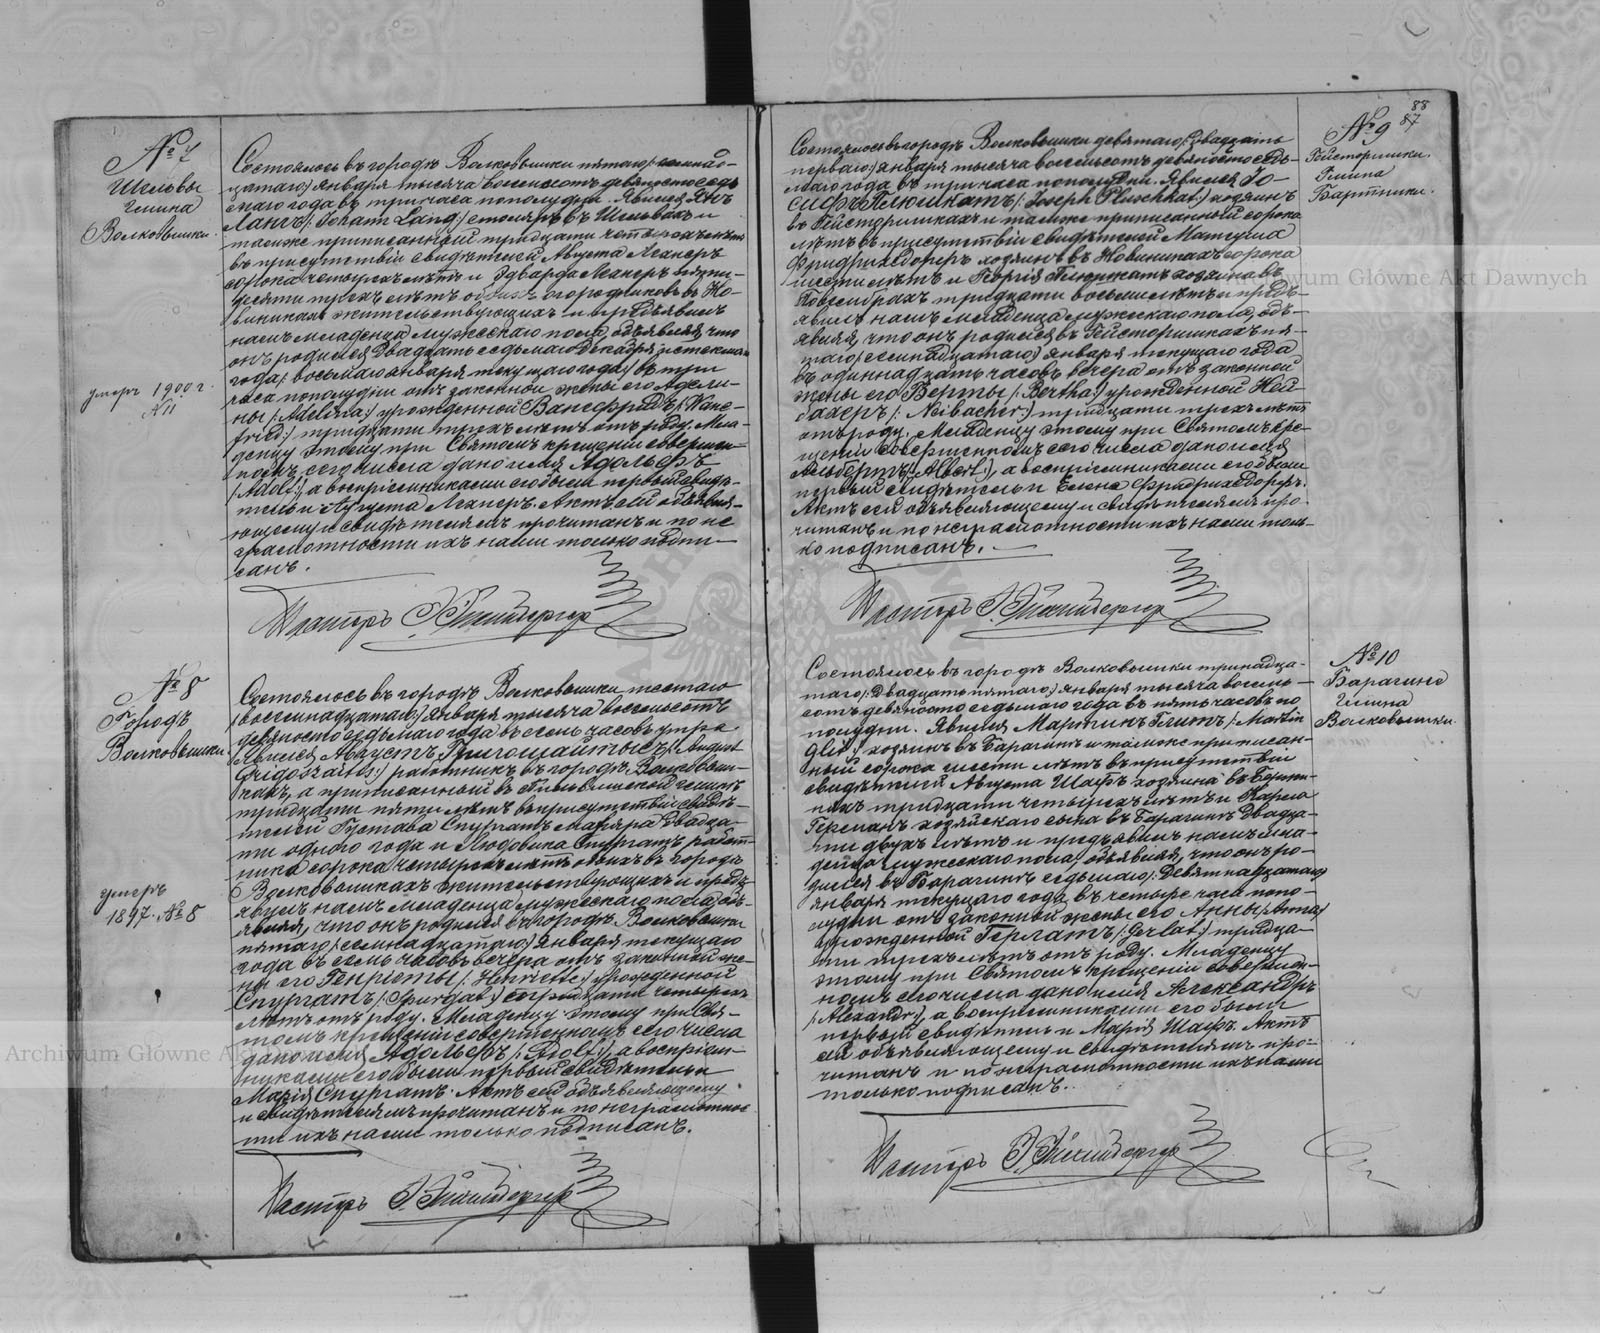 № 7
Шельвы
Гмина
Волковышки.
умеръ 1900 г.
Состоялось въ городѣ Волковышки пятаго /семнад-
цатаго/ Января тысяча восемьсотъ девяносто седь
маго года въ три часа пополудни. Явился Янъ
Лангъ /: Johann Lang:/ столяръ въ Шельвахъ и
тамже приписанный тридцати четырехъ лѣтъ
въ присутствіи свидѣтелей Августа Лехнеръ
сорока четырехъ лѣтъ и Эдварда Лехнеръ пяти-
десяти трехъ лѣтъ обоихъ огородниковъ въ Но-
виникахъ жительствующихъ и предъявилъ
намъ младенца мужескаго пола, объявляя, что
онъ родился Двадцать седьмаго Декабря истекшаго
года /восьмаго Января текущаго года/ въ три
часа пополудни отъ законной жены его Адели-
ны /:Adelina:/ урожденной Вансфридъ /:Wans-
fried:/ тридцати трехъ лѣтъ отъ роду. Мла-
денцу этому при Святомъ крещеніи совершен-
номъ сего числа дано имя Адольфъ
/:Adolf:/, а воспріемниками его были первый свидѣ-
тель и Августа Лехнеръ. Актъ сей объявля-
ющему и свидѣтелямъ прочитанъ и по не
грамотности ихъ нами только подпи-
санъ.
Пасторъ
№ 8
Городъ
Волковышки.
умеръ
1897. № 8
Состоялось въ городѣ Волковышки шестаго
/восемнадцатаго/ Января тысяча восемьсотъ
девяносто седьмаго года въ семь часовъ утра.
Явился Августъ Григошайтисъ /:August
Grigoszaitis:/ работникъ въ городѣ Волковыш-
кахъ, а приписанный въ гминѣ
тридцати пяти лѣтъ въ присутствіи свидѣ-
телей Густава Спургатъ маляра Двадца-
ти одного года и Людовика Спургатъ работ-
ника сорока четырехъ лѣтъ обоихъ въ городѣ
Волковышкахъ жительствующихъ и предъ-
явилъ намъ младенца мужескаго пола, объ-
являя, что онъ родился въ городѣ Волковышки
пятаго /семнадцатаго/ Января текущаго
года въ семь часовъ вечера отъ законной же-
ны его Генріеты /:Henriette:/ урожденной
Спургатъ /:Spurgat:/ тридцати четырехъ
лѣтъ отъ роду. Младенцу этому при Свя-
томъ крещеніи совершенномъ сего числа
дано имя Адольфъ /:Adolf:/, а воспріем-
никами его были первый свидѣтель и
Марія Спургатъ. Актъ сей объявляющему
и свидѣтелямъ прочитанъ и по неграмотнос-
ти ихъ нами только подписанъ.
Пасторъ
88
87
№ 9
Гейсторишки.
Гмина
Бартники.
Состоялось въ городѣ Волковышки девятаго /Двадцать
перваго/ Января тысяча восемьсотъ девяносто седь-
маго года въ три часа пополудни. Явился Іо-
сифъ Плюшкатъ /: Joseph Pluschkat:/ хозяинъ
въ Гейсторишкахъ и тамже приписанный сорока
лѣтъ въ присутствіи свидѣтелей Матеуша
Фридрихсдорфъ хозяинъ въ Новиникахъ сорока
шести лѣтъ и Георгія Плюшкатъ хозяина въ
тридцати восьми лѣтъ и предъ-
явилъ намъ младенца мужескаго пола, объ-
являя что онъ родился въ Гейсторишкахъ пя-
таго /семнадцатаго/ Января текущаго года
въ одиннадцать часовъ вечера отъ законной
жены его Берты /:Bertha:/ урожденной Ней-
бахеръ /: Neibacher:/ тридцати трехъ лѣтъ
отъ роду. Младенцу этому при Святомъ кре-
щеніи совершенномъ сего числа дано имя
Альбертъ /:Albert:/, а воспріемниками его были
первый свидѣтель и Елена Фридрихсдорфъ.
Актъ сей объявляющему и свидѣтелямъ про-
читанъ и по неграмотности ихъ нами толь-
ко подписанъ.
Пасторъ
№ 10
Барагине
Гмина
Волковышки.
Состоялось въ городѣ Волковышки тринадца-
таго /Двадцать пятаго/ Января тысяча восемь-
сотъ девяносто седьмаго года въ пять часовъ по
полудни. Явился Мартинъ Глитъ /:Martin
Glit:/ хозяинъ въ Барагинѣ и тамже приписан-
ный сорока шести лѣтъ въ присутствіи
свидѣтелей Августа Шафъ хозяина въ
тридцати четырехъ лѣтъ и Карла
Германъ хозяйскаго сына въ Барагинѣ Двадца-
ти двухъ лѣтъ и предъявилъ намъ мла-
денца мужескаго пола, объявляя, что онъ ро-
дился въ Барагинѣ седьмаго /Девятнадцатаго/
Января текущаго года въ четыре часа попо-
лудни отъ законной жены его Анны /:Anna:/
урожденной Герлатъ /:Gerlat:/ тридца-
ти трехъ лѣтъ отъ роду. Младенцу
этому при Святомъ крещеніи совершен-
номъ сего числа дано имя Александръ
/:Alexandr:/, а воспріемниками его были
первый свидѣтель и Марія Шафъ. Актъ
сей объявляющему и свидѣтелямъ про-
читанъ и по неграмотности ихъ нами
только подписанъ.
Пасторъ
Archiwum Główne Akt Dawnych
Archiwum Główne Akt